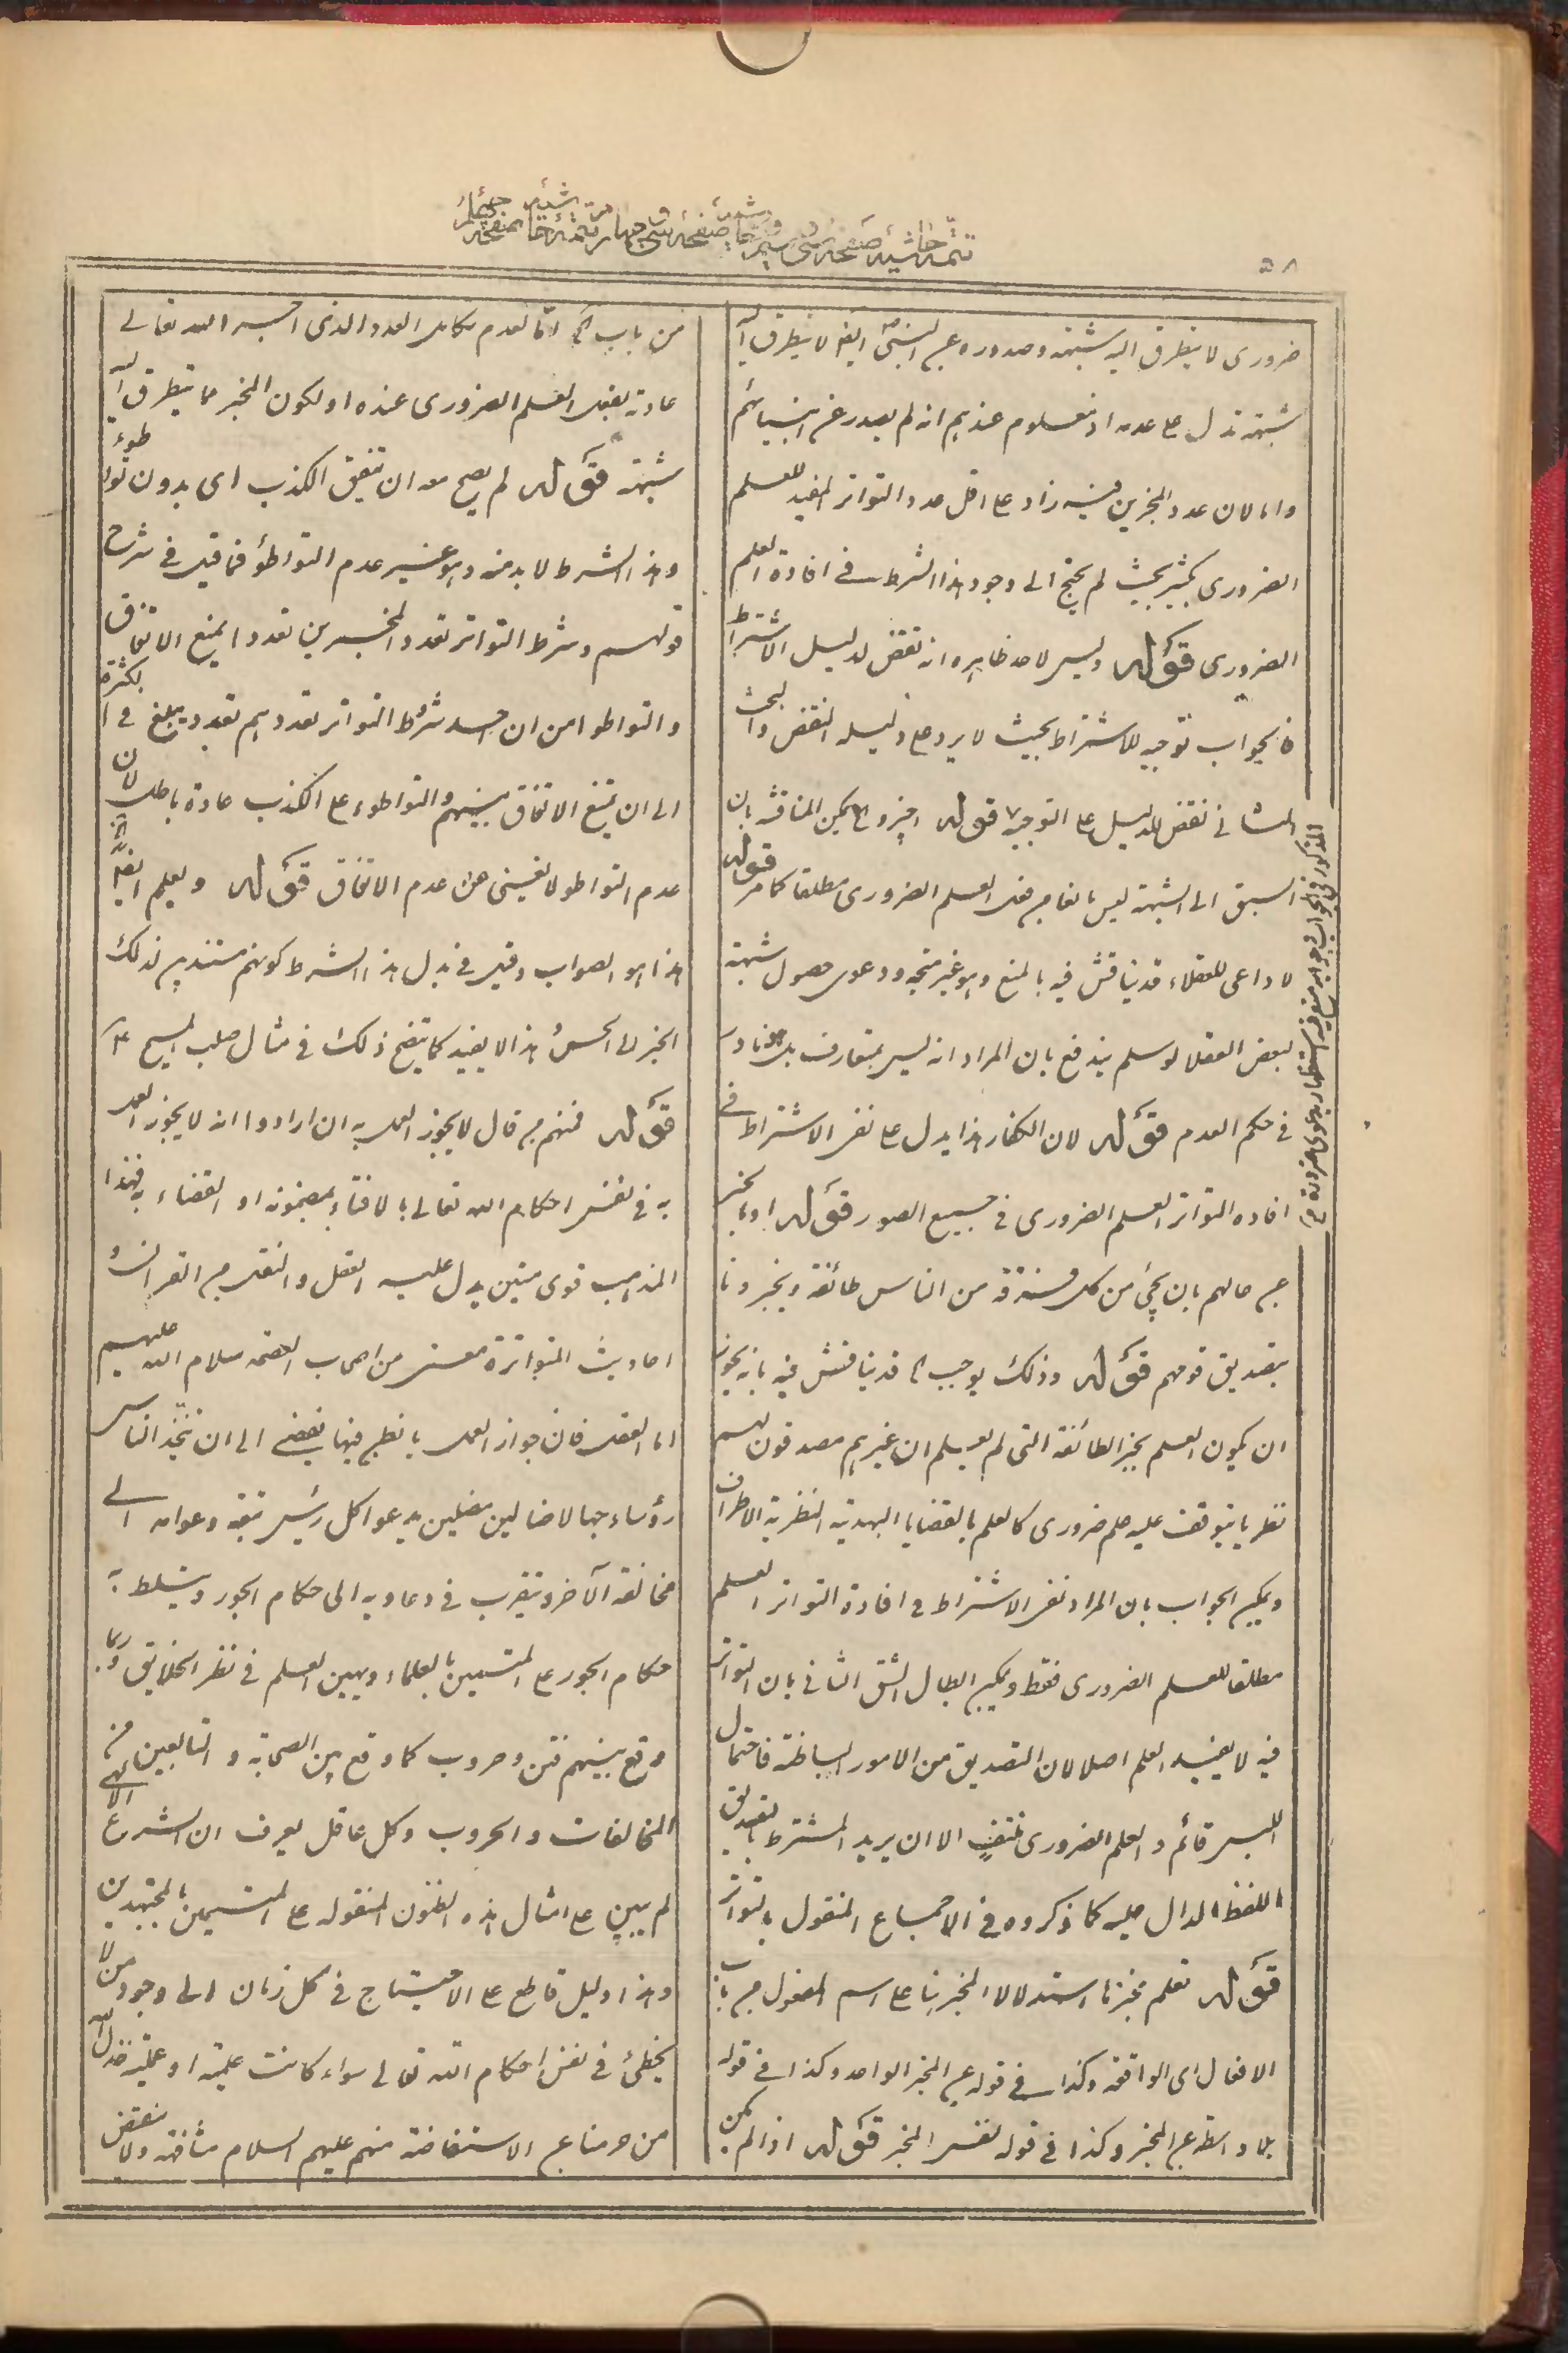 ٥٨
ضروری لا یتطرق الیه شبهة وصدوره عن النبی ایضا لا یتطرق الیه
شبهة تدل علی عدمه اذ معلوم عندهم انه لم یصدر عن انبیائهم
واما لان عدد المخبرین فیه زاد علی اقل عدد التواتر المفید للعلم
الضروری بکثیر بحیث لم یحتج الی وجود هذا الشرط فی افادة العلم
الضروری قوله ولیس لاحد ظاهره انه نقض لدلیل الاشتراط
فالجواب توجیه للاشتراط بحیث لا یرد علی دلیله النقض والبحث
الثانی نقض للدلیل علی التوجیه قوله یمکن المناقشة بان
السبق الی الشبهة لیس مانعا من العلم الضروری مطلقا کما مر قوله
لا داعی للعقلاء قد یناقش فیه بالمنع وهو غیر متجه ودعوی حصول شبهة
لبعض العقلا لو سلم یندفع بان المراد انه لیس بمتعارف بل هو نادر
فی حکم العدم قوله لان الکفار هذا یدل علی نفی الاشتراط فی
افاده التواتر العلم الضروری فی جمیع الصور قوله او بالخبر
عن حالهم بان یجیٔ من کل فرقة من الناس طائفة ویخبرونا
بتصدیق قومهم قوله وذلک یوجب الخ قد یناقش فیه بانه یجوز
ان یکون العلم بخبر الطائفة التی لم یعلم ان غیرهم مصدقون لهم
نظریا یتوقف علیه علم ضروری کالعلم بالقضایا البدیهیة النظریة الاطراف
ویمکن الجواب بان المراد نفی الاشتراط فی افادة التواتر العلم
مطلقا للعلم الضروری فقط ویمکن ابطال الشق الثانی بان التواتر
فیه لا یفید العلم اصلا لان التصدیق من الامور الباطنة فاحتمال
اللبس قائم والعلم الضروری منتف الا ان یرید المشترط بالتصدیق
اللفظ الدال علیه کما ذکروه فی الاجماع المنقول بالتواتر
قوله نعلم مخبرنا استدلالا المخبر بنا علی اسم المفعول من باب
الافعال ای الواقعة وکذا فی قوله عن المخبر الواحد وکذا فی قوله
بلا واسطة عن المخبر وکذا فی قوله نفس المخبر قوله اذا لم یکن
من باب الخ اما لعدم تکامل العدد الذی اجری الله تعالی
عادته بفعل العلم الضروری عنده او لکون المخبر مما یتطرق الیه
شبهة قوله لم یصح معه ان یتفق الکذب ای بدون تواطوء
وهذا الشرط لا بد منه وهو غیر عدم التواطؤ فما قیل فی شرح
قولهم وشرط التواتر تعدد المخبرین تعددا یمنع الاتفاق
والتواطؤ من ان احد شروط التواتر تعددهم تعدد یبلغ فی الکثرة
الی ان یمنع الاتفاق بینهم والتواطوء علی الکذب عادة باطل لان
عدم التواطؤ لا یغنی عن عدم الاتفاق قوله ویعلم ایضا الخ
هذا هو الصواب وقیل فی بدل هذا الشرط کونهم مستندین لذلک
الخبر الی الحس وهذا لا یفید کما یتضح ذلک فی مثال صلب المسیح ع
قوله فمنهم من قال لا یجوز العمل به ان ارادوا انه لا یجوز العمل
به فی نفس احکام الله تعالی بالافتاء بمضمونه او القضاء به فهذا
المذهب قوی متین یدل علیه العقل والنقل من القران و
احادیث المتواترة معنی من اصحاب العصمة سلام الله علیهم
اما العقل فان جواز العمل بالظن فیها یفضی الی ان یتخذ الناس
رؤساء جهالا ضالین مضلین یدعو کل رئیس تبعه وعوامه الی
مخالفة الآخر ویتقرب فی دعاویه الی حکام الجور ویتسلط به
حکام الجور علی المتسمین بالعلماء ویهین العلم فی نظر الخلایق وربما
وقع بینهم فتن وحروب کما وقع بین الصحابة والتابعین من
المخالفات والحروب وکل عاقل یعرف ان الشرع الالهی
لم یبین علی امثال هذه الظنون المنقوله علی المتسمین بالمجتهدین
وهذا دلیل قاطع علی الاحتیاج فی کل زمان الی وجود من لا
یخطئ فی نفس احکام الله تعالی سواء کانت علمیة او عملیة
من حرمنا عن الاستفاضة منهم علیهم السلام مشافهة ولا ینقض